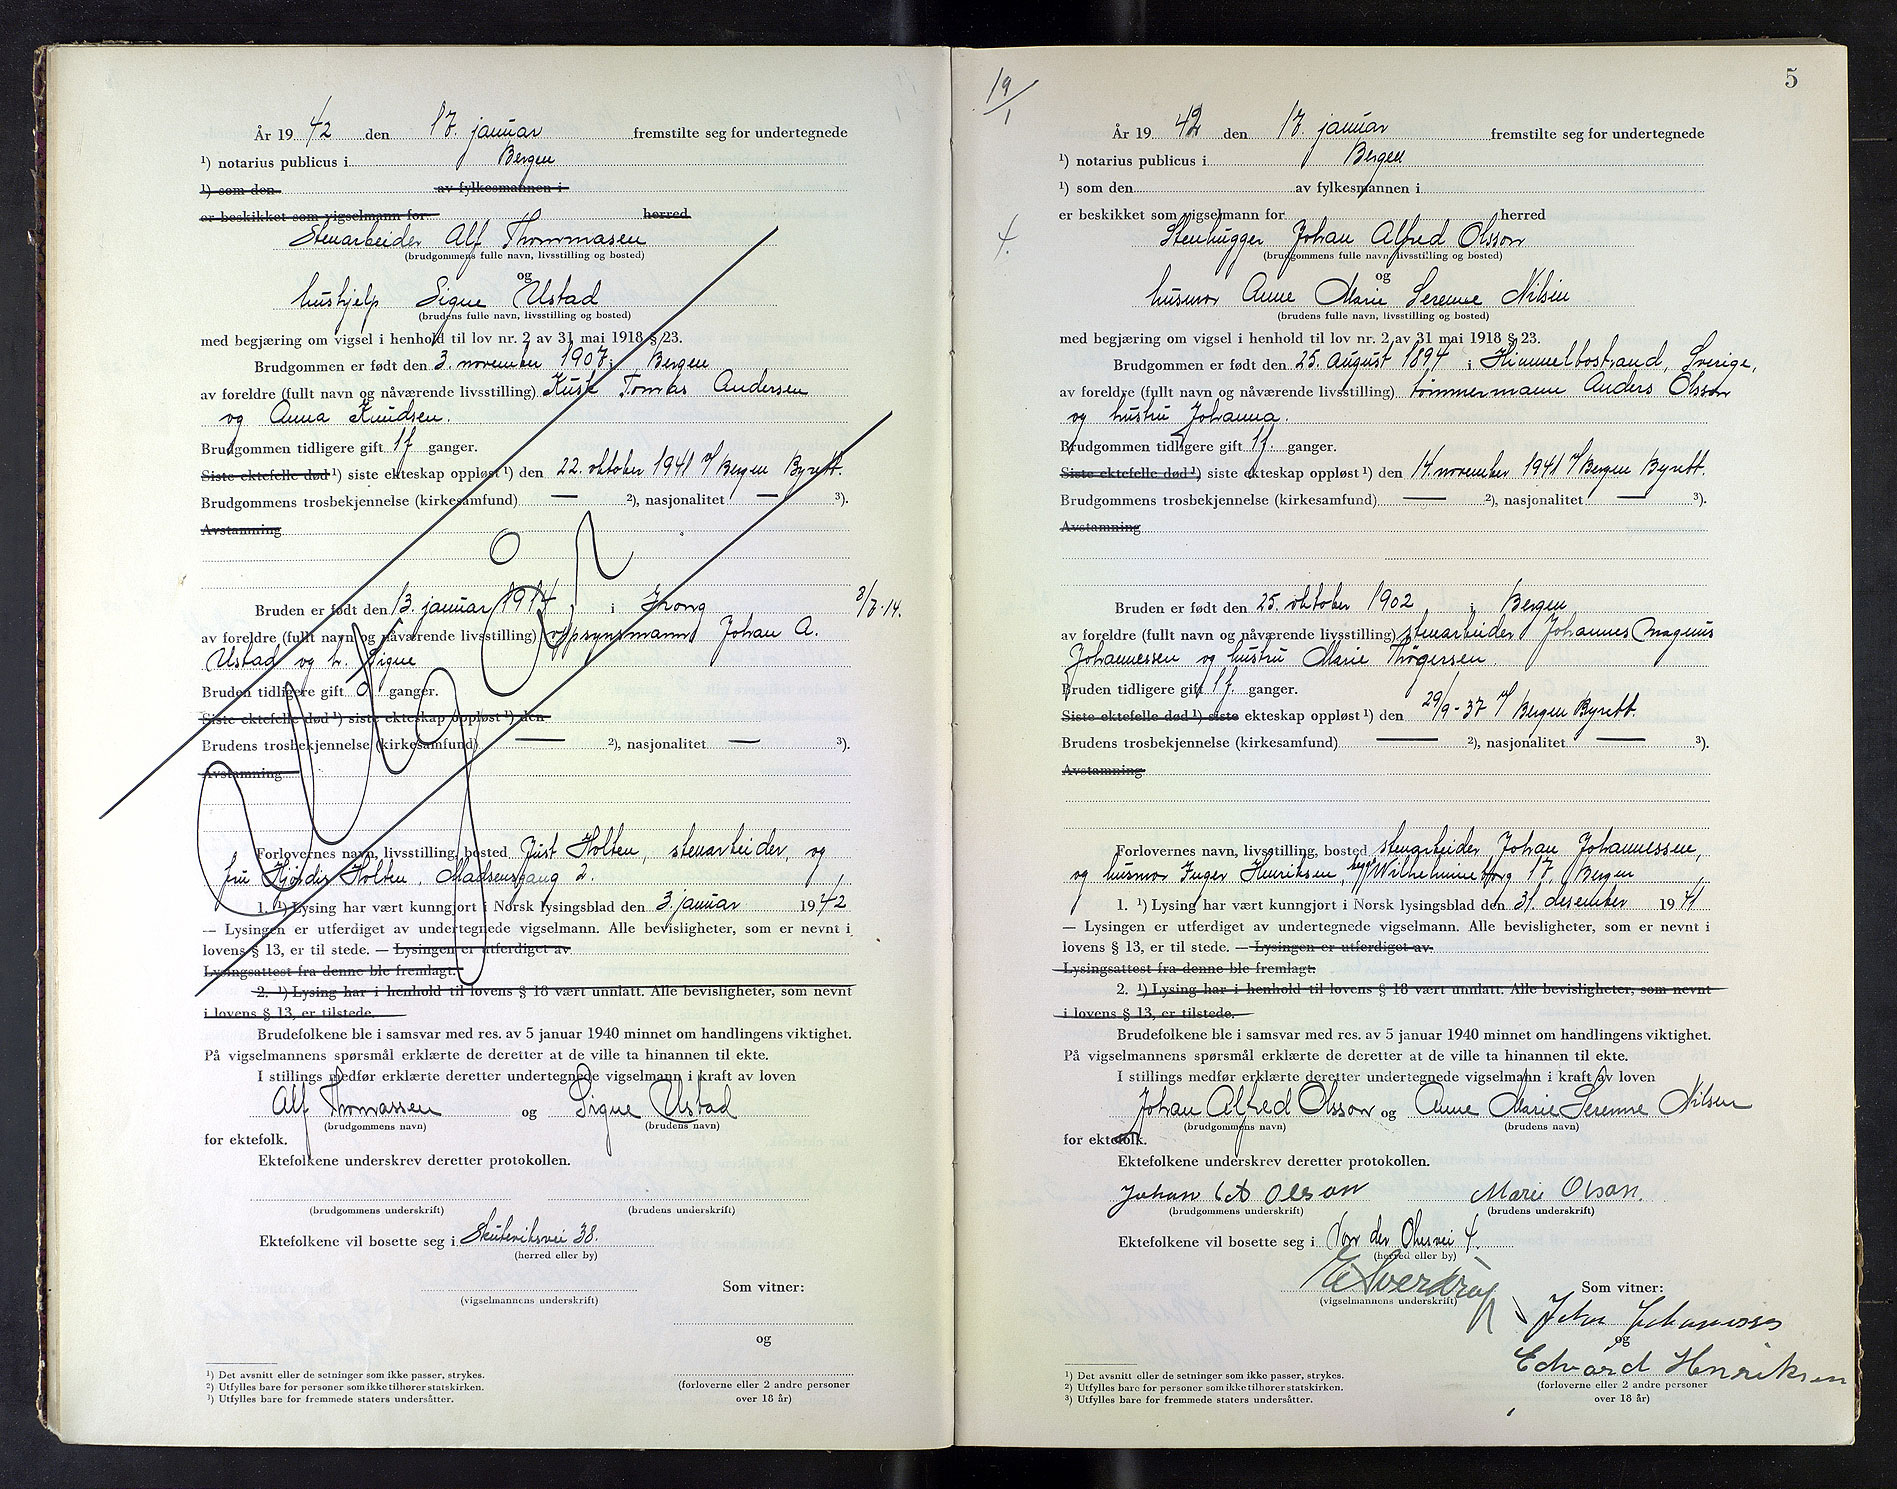 År 19 42 den 17. januar fremstilte seg for undertegnede
¹) notarius publicus i Bergen
¹) som den av fylkesmannen i
er beskikket som vigselmann for herred
Stenarbeider Alf Thommasen
(brudgommens fulle navn, livsstilling og bosted)
og
hushjelp Signe Ustad
(brudens fulle navn, livsstilling og bosted)
med begjæring om vigsel i henhold til lov nr. 2 av 31 mai 1918 § 23.
Brudgommen er født den 3. november 1907 i Bergen
av foreldre (fullt navn og nåværende livsstilling) Tomas Andersen
og Anna Knudsen.
Brudgommen tidligere gift 1 f. ganger.
Siste ektefelle død ¹) siste ekteskap oppløst ¹) den 22. oktober 1941 v/ Bergen Byrett.
Brudgommens trosbekjennelse (kirkesamfund) — ²), nasjonalitet — ³).
Avstamning
Bruden er født den 13. januar 1914 i Grong 8/7-14.
av foreldre (fullt navn og nåværende livsstilling) oppsynsmann Johan A.
Ustad og h. Signe
Bruden tidligere gift 0 ganger.
Siste ektefelle død ¹) siste ekteskap oppløst ¹) den
Brudens trosbekjennelse (kirkesamfund) — ²), nasjonalitet — ³).
Avstamning
Forlovernes navn, livsstilling, bosted Just Holten, stenarbeider, og
fru Hjørdis Holten, Madsensgang 2.
1. ¹) Lysing har vært kunngjort i Norsk lysingsblad den 3. januar 19 42
— Lysingen er utferdiget av undertegnede vigselmann. Alle bevisligheter, som er nevnt i
lovens § 13, er til stede. — Lysingen er utferdiget av
Lysingsattest fra denne ble fremlagt.
2. ¹) Lysing har i henhold til lovens § 18 vært unnlatt. Alle bevisligheter, som nevnt
i lovens § 13, er tilstede.
Brudefolkene ble i samsvar med res. av 5 januar 1940 minnet om handlingens viktighet.
På vigselmannens spørsmål erklærte de deretter at de ville ta hinannen til ekte.
I stillings medfør erklærte deretter undertegnede vigselmann i kraft av loven
Alf Thomassen og Signe Ustad
(brudgommens navn) (brudens navn)
for ektefolk.
Ektefolkene underskrev deretter protokollen.
(brudgommens underskrift) (brudens underskrift)
Ektefolkene vil bosette seg i Skuteviksvei 38.
(herred eller by)
Som vitner:
(vigselmannens underskrift)
og
¹) Det avsnitt eller de setninger som ikke passer, strykes.
²) Utfylles bare for personer som ikke tilhører statskirken.
³) Utfylles bare for fremmede staters undersåtter.
(forloverne eller 2 andre personer
over 18 år)
5
19/1
År 19 42 den 17. januar fremstilte seg for undertegnede
¹) notarius publicus i Bergen
¹) som den av fylkesmannen i
er beskikket som vigselmann for herred
4.
Stenhugger Johan Alfred Olsson
(brudgommens fulle navn, livsstilling og bosted)
og
husmor Anne Marie Serenne Nilsen
(brudens fulle navn, livsstilling og bosted)
med begjæring om vigsel i henhold til lov nr. 2 av 31 mai 1918 § 23.
Brudgommen er født den 25. august 1894 i Himmelbostrand, Sverige,
av foreldre (fullt navn og nåværende livsstilling) tømmermann Anders Olsson
og hustru Johanna.
Brudgommen tidligere gift 1 f. ganger.
Siste ektefelle død ¹) siste ekteskap oppløst ¹) den 14. november 1941 v/ Bergen Byrett.
Brudgommens trosbekjennelse (kirkesamfund) — ²), nasjonalitet — ³).
Avstamning
Bruden er født den 25. oktober 1902 i Bergen
av foreldre (fullt navn og nåværende livsstilling) stenarbeider Johannes Magnus
Johannessen og hustru Marie Thøgersen.
Bruden tidligere gift 1 f. ganger.
Siste ektefelle død ¹) siste ekteskap oppløst ¹) den 29/9-37 v/ Bergen Byrett.
Brudens trosbekjennelse (kirkesamfund) — ²), nasjonalitet — ³).
Avstamning
Forlovernes navn, livsstilling, bosted stenarbeider Johan Johannessen,
og husmor Inger Henriksen, Wilhelmineborg 17, Bergen
1. ¹) Lysing har vært kunngjort i Norsk lysingsblad den 31. desember 19 41
— Lysingen er utferdiget av undertegnede vigselmann. Alle bevisligheter, som er nevnt i
lovens § 13, er til stede. — Lysingen er utferdiget av
Lysingsattest fra denne ble fremlagt.
2. ¹) Lysing har i henhold til lovens § 18 vært unnlatt. Alle bevisligheter, som nevnt
i lovens § 13, er tilstede.
Brudefolkene ble i samsvar med res. av 5 januar 1940 minnet om handlingens viktighet.
På vigselmannens spørsmål erklærte de deretter at de ville ta hinannen til ekte.
I stillings medfør erklærte deretter undertegnede vigselmann i kraft av loven
Johan Alfred Olsson og Anne Marie Serenne Nilsen
(brudgommens navn) (brudens navn)
for ektefolk.
Ektefolkene underskrev deretter protokollen.
Johan Olsson Marie Olson.
(brudgommens underskrift) (brudens underskrift)
Ektefolkene vil bosette seg i Von der Ohesvei 4.
(herred eller by)
E Sverdrup Som vitner:
(vigselmannens underskrift)
Johan Johannessen
og
Edvard Henriksen
¹) Det avsnitt eller de setninger som ikke passer, strykes.
²) Utfylles bare for personer som ikke tilhører statskirken.
³) Utfylles bare for fremmede staters undersåtter.
(forloverne eller 2 andre personer
over 18 år)